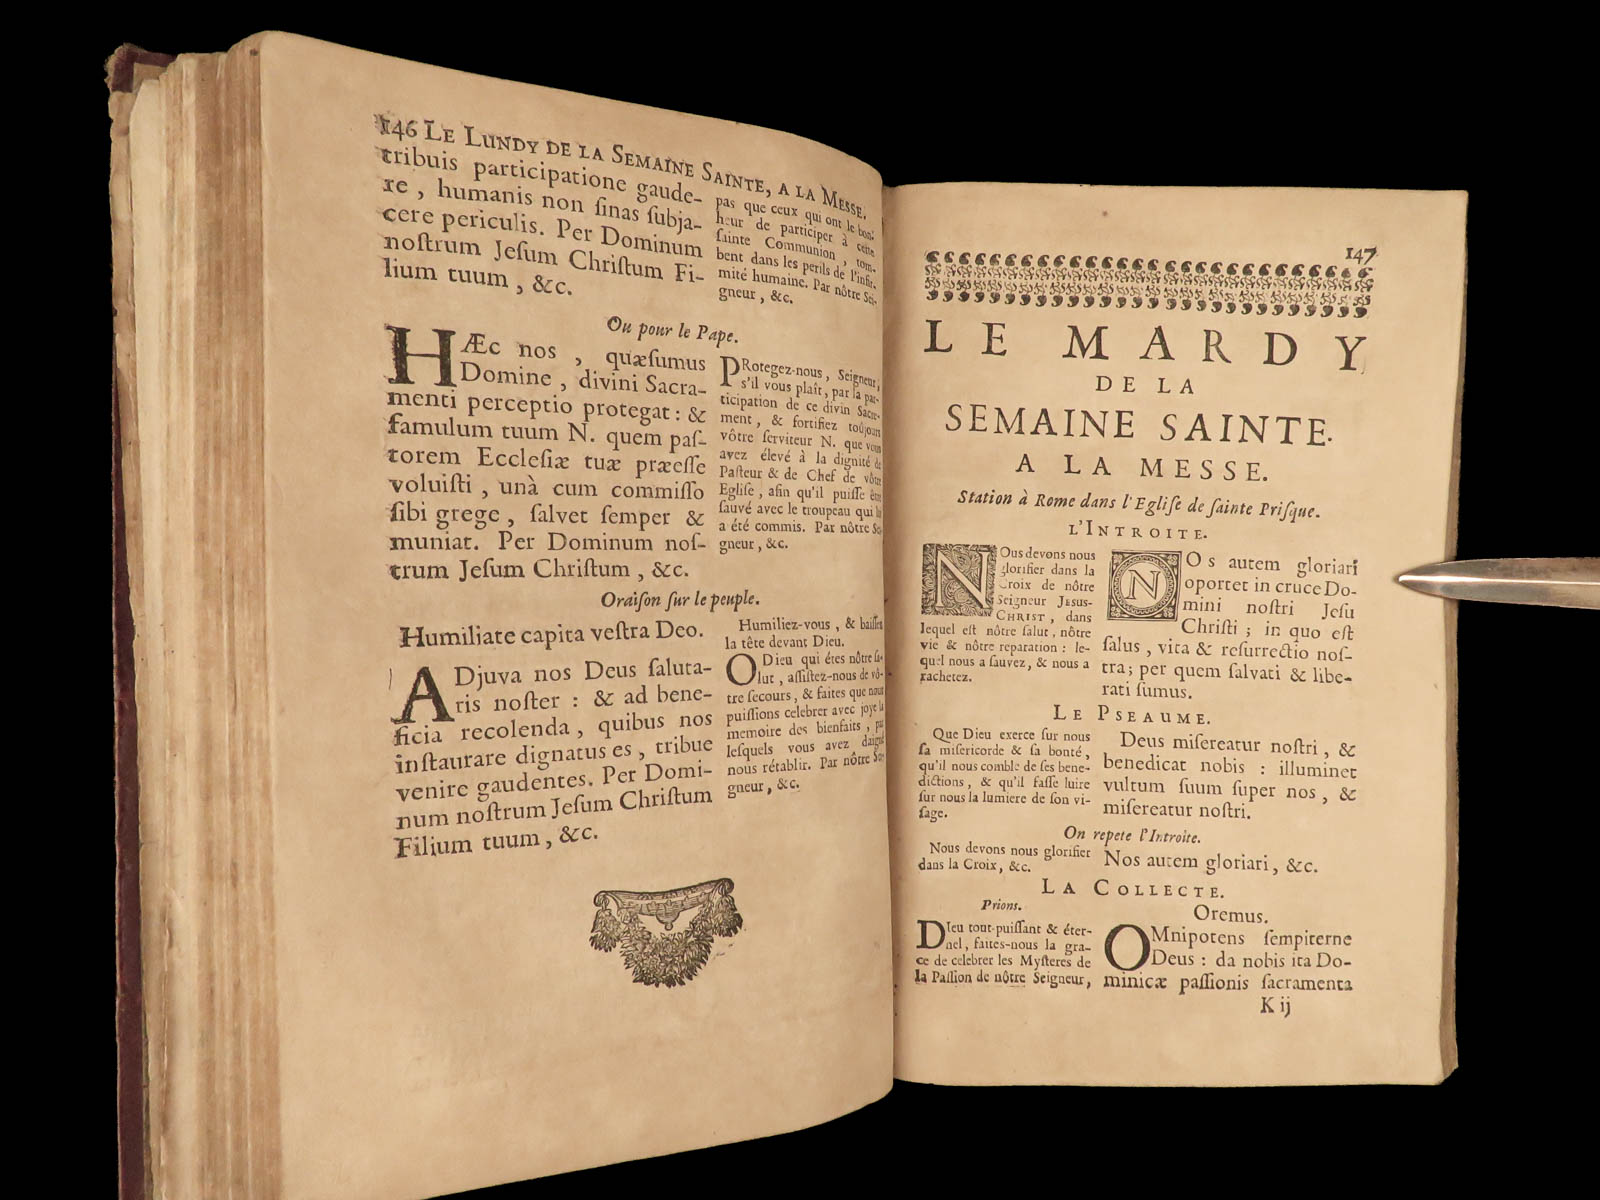 146 LE LUNDY DE LA SEMAINE SAINTE, A LA MESSE.
tribuis participatione gaude-
re, humanis non ſinas ſubja-
cere periculis. Per Dominum
noſtrum Jeſum Chriſtum Fi-
lium tuum, &c.
pas que ceux qui ont le bon-
heur de participer à cette
ſainte Communion, tom-
bent dans les perils de l'infir-
mité humaine. Par nôtre Sei-
gneur, &c.
Ou pour le Pape.
HÆc nos, quæſumus
Domine, divini Sacra-
menti perceptio protegat: &
famulum tuum N. quem paſ-
torem Eccleſiæ tuæ præeſſe
voluiſti, unà cum commiſſo
ſibi grege, ſalvet ſemper &
muniat. Per Dominum noſ-
trum Jeſum Chriſtum, &c.
PRotegez-nous, Seigneur,
s'il vous plaît, par la par-
ticipation de ce divin Sacre-
ment, & fortifiez toûjours
vôtre ſerviteur N. que vous
avez élevé à la dignité de
Paſteur & de Chef de vôtre
Egliſe, afin qu'il puiſſe être
ſauvé avec le troupeau qui lui
a été commis. Par nôtre Sei-
gneur, &c.
Oraiſon ſur le peuple.
Humiliate capita veſtra Deo.
ADjuva nos Deus ſaluta-
ris noſter: & ad bene-
ficia recolenda, quibus nos
inſtaurare dignatus es, tribue
venire gaudentes. Per Domi-
num noſtrum Jeſum Chriſtum
Filium tuum, &c.
Humiliez-vous, & baiſſez
la tête devant Dieu.
O Dieu qui étes nôtre ſa-
lut, aſſiſtez-nous de vô-
tre ſecours, & faites que nous
puiſſions celebrer avec joye la
memoire des bienfaits, par
leſquels vous avez daigné
nous rétablir. Par nôtre Sei-
gneur, &c.
147
LE MARDY
DE LA
SEMAINE SAINTE.
A LA MESSE.
Station à Rome dans l'Egliſe de ſainte Priſque.
L'INTROITE.
NOus devons nous
glorifier dans la
Croix de nôtre
Seigneur JESUS-
CHRIST, dans
lequel eſt nôtre ſalut, nôtre
vie & nôtre reparation: le-
quel nous a ſauvez, & nous a
rachetez.
NOs autem gloriari
oportet in cruce Do-
mini noſtri Jeſu
Chriſti; in quo eſt
ſalus, vita & reſurrectio noſ-
tra; per quem ſalvati & libe-
rati ſumus.
LE PSEAUME.
Que Dieu exerce ſur nous
ſa miſericorde & ſa bonté,
qu'il nous comble de ſes bene-
dictions, & qu'il faſſe luire
ſur nous la lumiere de ſon vi-
ſage.
Deus miſereatur noſtri, &
benedicat nobis: illuminet
vultum ſuum ſuper nos, &
miſereatur noſtri.
On repete l'Introite.
Nous devons nous glorifier
dans la Croix, &c.
Nos autem gloriari, &c.
LA COLLECTE.
Prions.
DIeu tout-puiſſant & éter-
nel, faites-nous la gra-
ce de celebrer les Myſteres de
la Paſſion de nôtre Seigneur,
Oremus.
OMnipotens ſempiterne
Deus: da nobis ita Do-
minicæ paſſionis ſacramenta
K ij